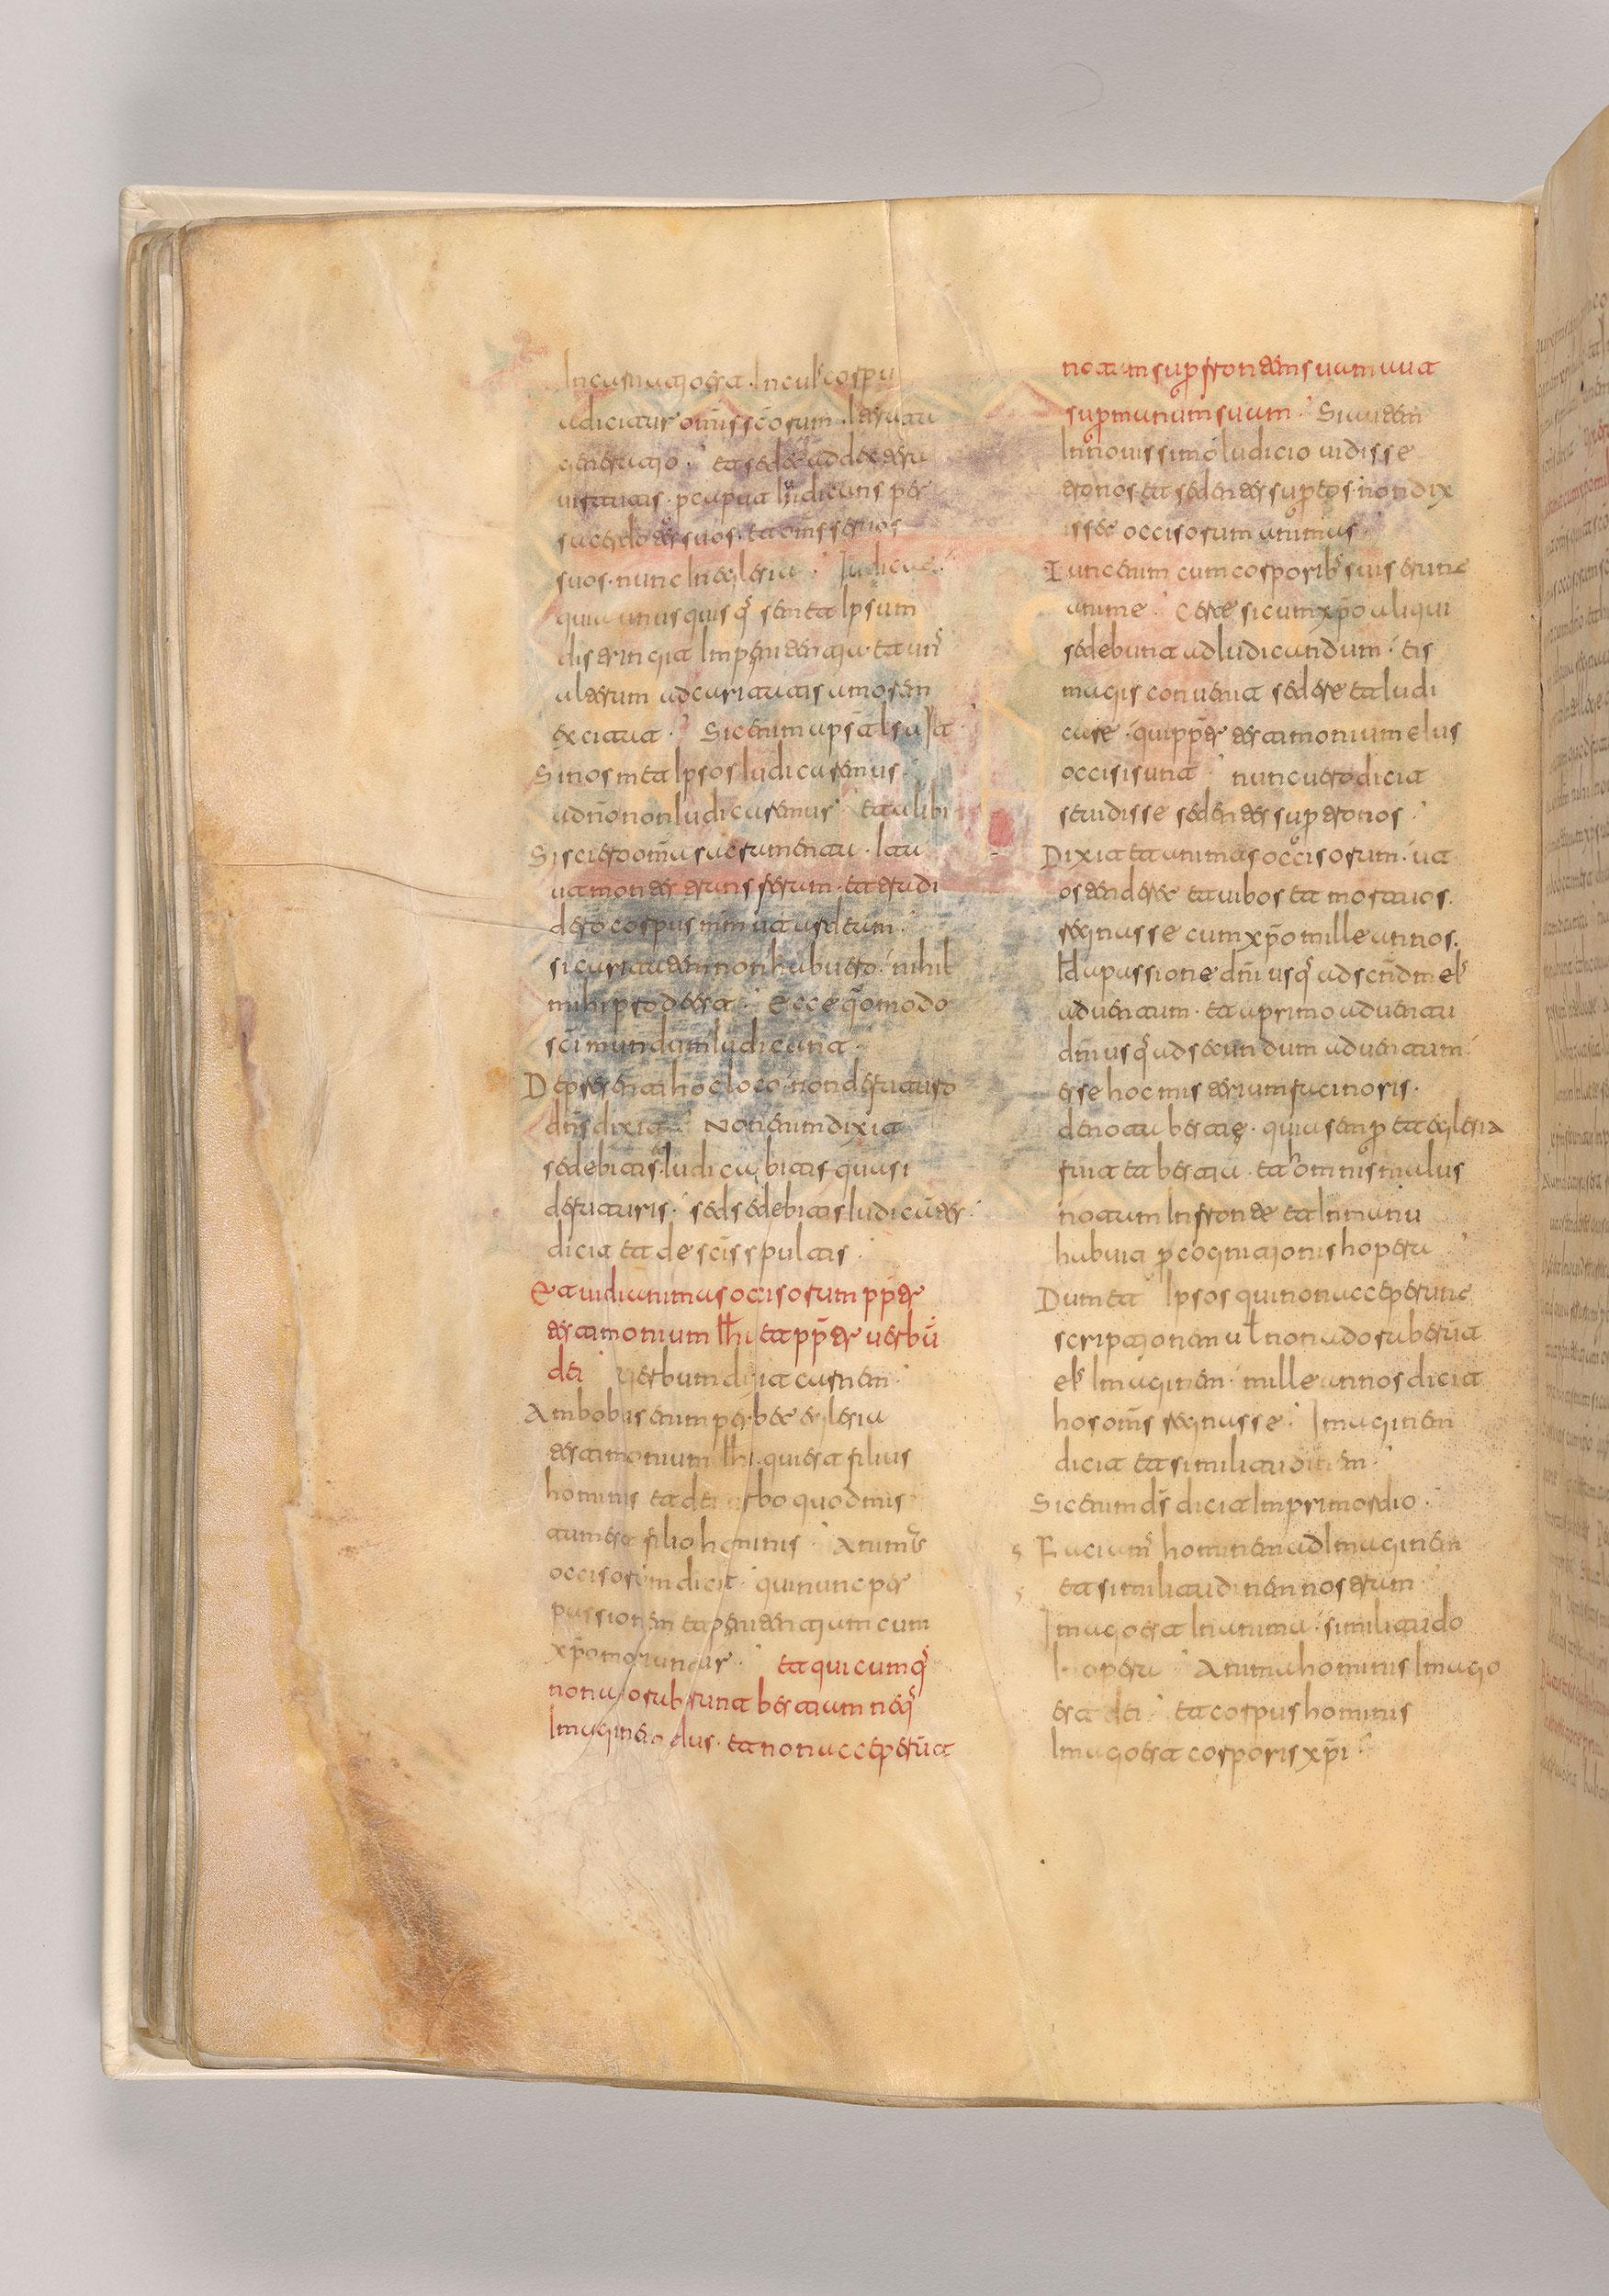 Incarnatio est · In cuiꝰ corpu
adicitur om̅is sc̅orum
generatio · et sedet ad dextera
uirtutis · p caput Iudicans per
sacerdotes suos · et om̅s seruos
suos · nunc In eglesia · Iudicat
quia unusquisqꝫ sem et Ipsum
distingit In penitentia · et un̅
alterum ad caritatis amorem
excitat · Sic enim aps̅tls ait ·
Si nos met Ipsos Iudicaremus
a dn̅o non Iudicaremur · et alibi
Si sciero om̅a sacramenta · Ita
ut montes transferam · et tradi
dero corpus mm̅ ut ardeam ·
si caritatem non habuero · nihil
mihi proderit · Ecce qomodo
sc̅i mundum Iudicant ·
De presenti hoc loco · non de futuro
dn̅s dixit · Non enim dixit
sedebitis · Iudicabitis quasi
de futuris · sed sedebitis Iudica̅tes ·
dicit et de sc̅is spultis ·
Et uidi animas occisorum pp̅ter
testimonium Ih̅u et pp̅ter uerbu̅
dei · Uerbum dicit carnem ·
Ambobus enim perhibet eglesia
testimonium Ih̅u · qui est filius
hominis et dei uerbo quod mis
tum est filio hominis · Animas
occisorum dicit · qui nunc per
passionem et penitentiam cum
xp̅o moriuntur · et quicumqꝫ
non adoraberunt bestiam neqꝫ
Imaginem eius · et non acceperu̅t
notam sup̅ frontem suam aut
sup̅ manum suam · Si autem
In nouissimo Iudicio uidisse
tronos et sedentes sup̅ eos · non dix
isset occisorum animas ·
Tunc enim cum corporibꝫ suis erunt
anime · Certe si cum xp̅o aliqui
sedebunt ad Iudicandum · eis
magis conuenit sedere et Iudi
care · qui pp̅ter testimonium eIus
occisi sunt · nunc uero dicit
se uidisse sedentes sup̅ tronos ·
Dixit et animas occisorum · ut
ostenderet et uibos et mortuos ·
regnasse cum xp̅o mille annos ·
Id a passione dn̅i usqꝫ ad scn̅dm eIꝰ
aduentum · et a primo aduentu
dn̅i usqꝫ ad secundum aduentum ·
esse hoc misterium facinoris ·
de nota bestię · quia semp̅ et eglesia
fuit et bestia · et omnis malus
notam In fronte et In manu
habuit p cognitionis hopera ·
Dum et Ipsos qui non acceperunt
scriptionem ul non adoraberu̅t
eIꝰ Imaginem · mille annos dicit
hos om̅s regnasse · Imaginem
dicit et similitudinem ·
Sic enim ds̅ dicit In primordio ·
Faciamꝰ hominem ad Imaginem
et similitudinem nostram
Imago est In anima · similitudo
In opera · Anima hominis Imago
est dei · et corpus hominis
Imago est corporis xp̅i ·